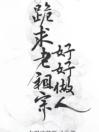 跪求老祖宗
好好做人